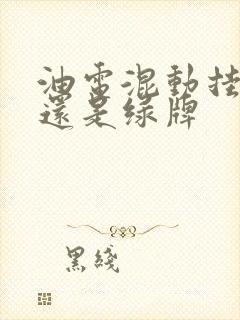 油電混動挂
還是绿牌
黑綫